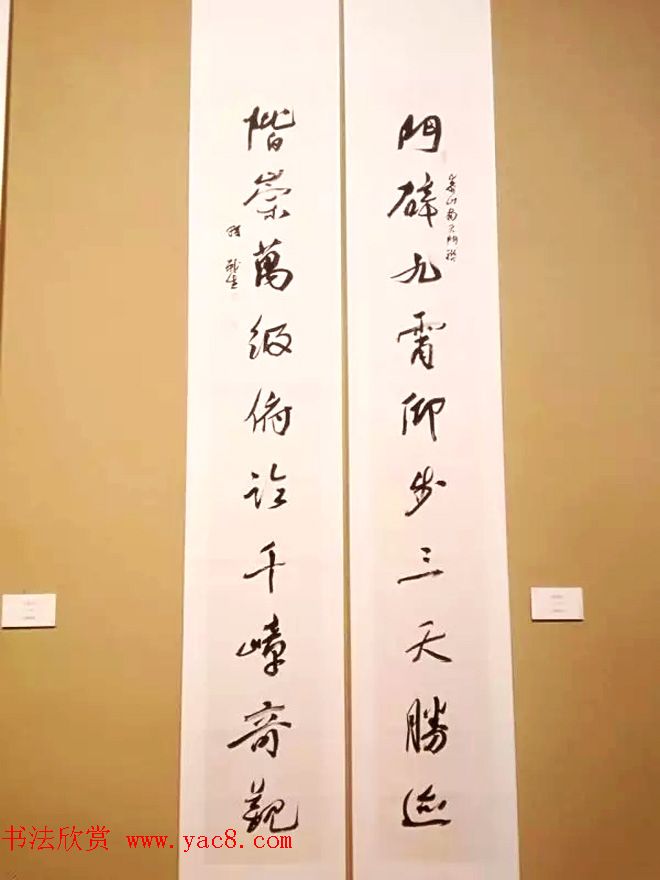 門辟九霄仰步三天勝迹
泰山南天門聯
階崇萬級俯臨千嶂奇觀
书法欣赏 www.yac8.com